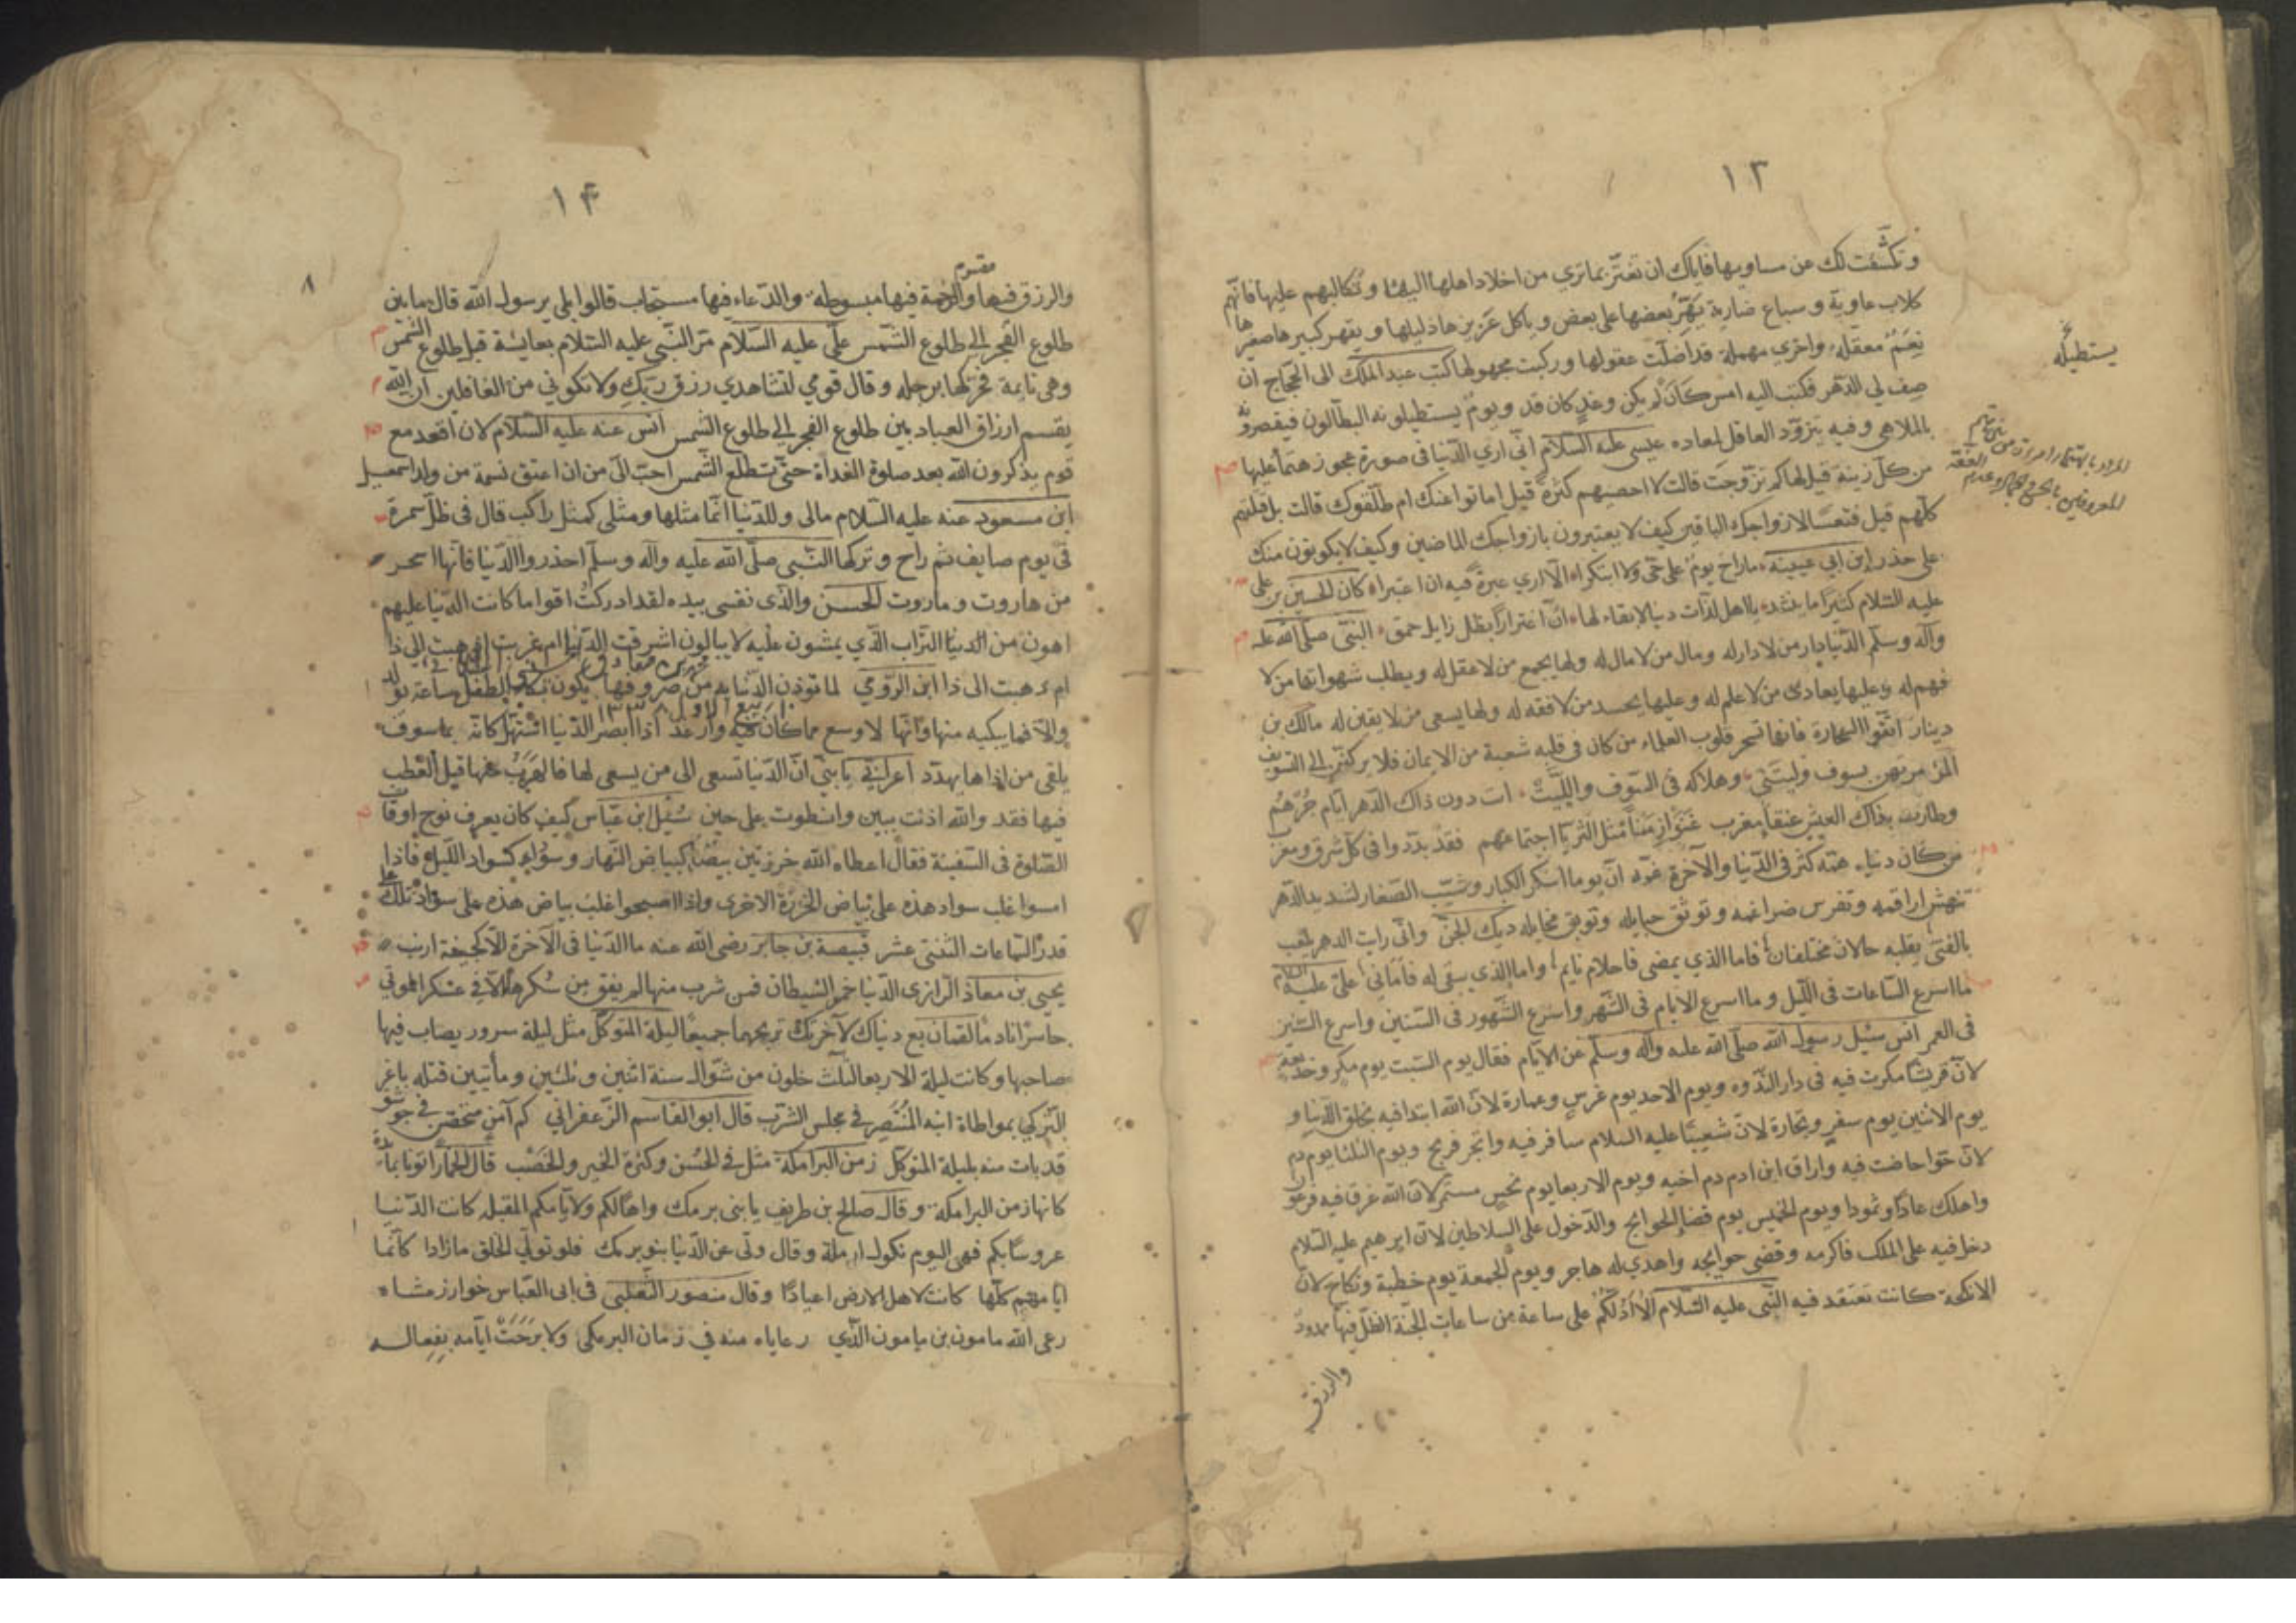 ١٣
وتكشّفت لك عن مساويها فاياك ان تغترّ بما تري من اخلاد اهلها اليها وتكالبهم عليها فانّهم
كلاب عاوية وسباع ضارية يهرّ بعضها على بعض وياكل عزيزها ذليلها ويقهر كبيرها صغيرها
نعم معقله واخري مهملة قد اضلّت عقولها وركبت مجهولها كتب عبد الملك الى الحجّاج ان
صف لي الدهر فكتب اليه امس كان لم يكن وغد كان قد ويوم يستطيلونه البطّالون فيقصرونه
بالملاهي وفيه يتزوّد العاقل لمعاده عيسى عليه السلام انّي اري الدّنيا في صورة عجوز هتماء عليها
من كلّ زينة قيل لها كم تزوّجت قالت لا احصيهم كثرة قيل اماتوا عنك ام طلّقوك قالت بل قتلتهم
كلّهم قيل فتعسًا لازواجك الباقين كيف لا يعتبرون بازواجك الماضين وكيف لا يكونون منك
على حذر ابن ابي عيينه ما راح يوم على حيّ ولا ابتكرا الّا اري عبرة فيه ان اعتبرا كان الحسين بن علي
عليه السّلام كثيرًا ما ينشد يا اهل لذّات دنيا لا بقاء لها انّ اغترارًا بظل زايل حمق النبّى صلّى الله عليه
وآله وسلّم الدّنيا دار من لا دار له ومال من لا مال له ولها يجمع من لا عقل له ويطلب شهواتها من لا
فهم له وعليها يعادى من لا علم له وعليها يحسد من لا فقه له ولها يسعى من لا يقين له مالك بن
دينار اتّقوا السحّارة فانها تسحر قلوب العلماء من كان في قلبه شعبة من الايمان فلا يركننّ الى التسويف
المرء مرتهن بسوف وليتني وهلاكه في السّوف واللّيت ات دون ذاك الدّهر ايّام جُرهُم
وطارت بذاك العيش عنقاء مغرب مثل الثريّا اجتماعهم فقد بدّدوا في كلّ شرق ومغرب
من كان دنياه همّه كثر في الدّنيا والآخرة غمّه انّ يوما اسكر الكبار وشيّب الصّغار لشديد الدّهر
تنهش اراقمه وتفرس ضراغمه وتوثق حبايله وتوبق مخايله ديك الجنّ وانّي رايت الدهر يلعب
بالفتى يقلبه حالان مختلفان فاما الذي يمضي فاحلام نايم واما الذي يبقى له فاماني علي عليه السلام
ما اسرع السّاعات في اللّيل وما اسرع الايام في الشّهر واسرع الشّهور في السّنين واسرع السّنين
في العمر انس سئل رسول الله صلّى الله عليه وآله وسلّم عن الايام فقال يوم السّبت يوم مكر وخديعة
لانّ قريشًا مكرت فيه في دار النّدوه ويوم الاحد يوم غرس وعمارة لانّ الله ابتدا فيه بخلق الدّنيا و
يوم الاثنين يوم سفر وتجارة لانّ شعيبًا عليه السلام سافر فيه واتجر فربح ويوم الثلثا يوم دم
لانّ حوّا حاضت فيه واراق ابن ادم دم اخيه ويوم الاربعا يوم نحس مستمر لانّ الله غرق فيه فرعون
واهلك عادًا وثمودا ويوم الخميس يوم قضاء الحوايج والدّخول على السلاطين لانّ ابرهيم عليه السّلام
دخل فيه على الملك فاكرمه وقضى حوايجه واهدي له هاجر ويوم الجمعة يوم خطبة ونكاح لانّ
الانكحة كانت تعتقد فيه النّبي عليه السّلام الا ادلّكم على ساعة من ساعات الجنّة الظلّ فيها ممدود
والرزق
يستطيله
١۴
٨
مقسوم
والرزق فيها والرحمة فيها مبسوطة والدّعاء فيها مستجاب قالوا بلى يرسول الله قال ما بين
طلوع الفجر الى طلوع الشّمس علي عليه السّلام مرّ النّبي عليه السّلام بعايشة قبل طلوع الشّمس
وهي نايمة فحركها برجله وقال قومي لتشاهدي رزق ربّك ولا تكوني من الغافلين انّ الله
يقسم ارزاق العباد بين طلوع الفجر الى طلوع الشّمس انس عنه عليه السّلام لان اقعد مع
قوم يذكرون الله بعد صلوة الغداة حتّى تطلع الشّمس احبّ الىّ من ان اعتق نسمة من ولد اسمعيل
ابن مسعود عنه عليه السّلام مالى وللدّنيا انّما مثلها ومثلى كمثل راكب قال في ظلّ سمرة
في يوم صايف ثم راح وتركها النّبي صلّى الله عليه وآله وسلّم احذروا الدّنيا فانّها اسحر
من هاروت وماروت الحسن والذي نفسي بيده لقد ادركت اقواما كانت الدّنيا عليهم
اهون من الدنيا التّراب الّذي يمشون عليه لا يبالون اشرقت الدّنيا ام غربت اذهبت الى ذا
ام ذهبت الى ذا ابن الرّومي لما توذن الدّنيا به من صروفها يكون بكاء الطّفل ساعة يولد
والّا فما يبكيه منها وانّها لاوسع مما كان فيه وارغد اذا ابصر الدّنيا استهلّ كانّه بما سوف
يلقى من اذاها يهدّد اعرابي يا بني انّ الدّنيا تسعى الى من يسعى لها فالهرب منها قبل العطب
فيها فقد والله اذنت ببين وانطوت على حين سُئل ابن عبّاس كيف كان يعرف نوح اوقات
الصّلوة في السّفينة فقال اعطاه الله خرزتين بيضا كبياض النّهار وسوداء كسواد اللّيل فاذا
امسوا غلب سواد هذه على بياض الخرزة الاخرى واذا اصبحوا غلب بياض هذه على سواد تلك
قدر السّاعات الثّنتي عشر قبيصة بن جابر رضي الله عنه ما الدّنيا في الآخرة الّا كنفخة ارنب
يحيى بن معاذ الرّازي الدّنيا خمر الشيطان فمن شرب منها لم يفق من سُكرها الّا في عسكر الموتى
خاسرًا نادمًا لقمان بع دنياك لآخرتك تربحهما جميعًا ليلة المتوكّل مثل ليلة سرور يصاب فيها
صاحبها وكانت ليلة الاربعا لثلث خلون من شوّال سنة اثنين وثلثين ومأتيين قتله باغر
التّركي بمواطاة ابنه المنتصر في مجلس الشرّب قال ابو القاسم الزّعفراني كم آمن متحصّن في جوشق
قد بات منه بليلة المتوكّل زمن البرامكة مثل في الحُسن وكثرة الخير والخصب قال
كانها زمن البرامكة وقال صالح بن طريف يا بني برمك واهًا لكم ولايّامكم المقبله كانت الدّنيا
عروسًا بكم فهي اليوم ثكول ارملة وقال ولّى عن الدّنيا بنو برمك فلو تولّى الخلق ما زادا كانّما
ايّامهم كلّها كانت لاهل الارض اعيادًا وقال منصور الثّعلبي في ابى العبّاس خوارزمشاه
رعى الله مامون بن مامون الّذي رعاياه منه في زمان البرمكي ولا برحت ايّامه بفعاله